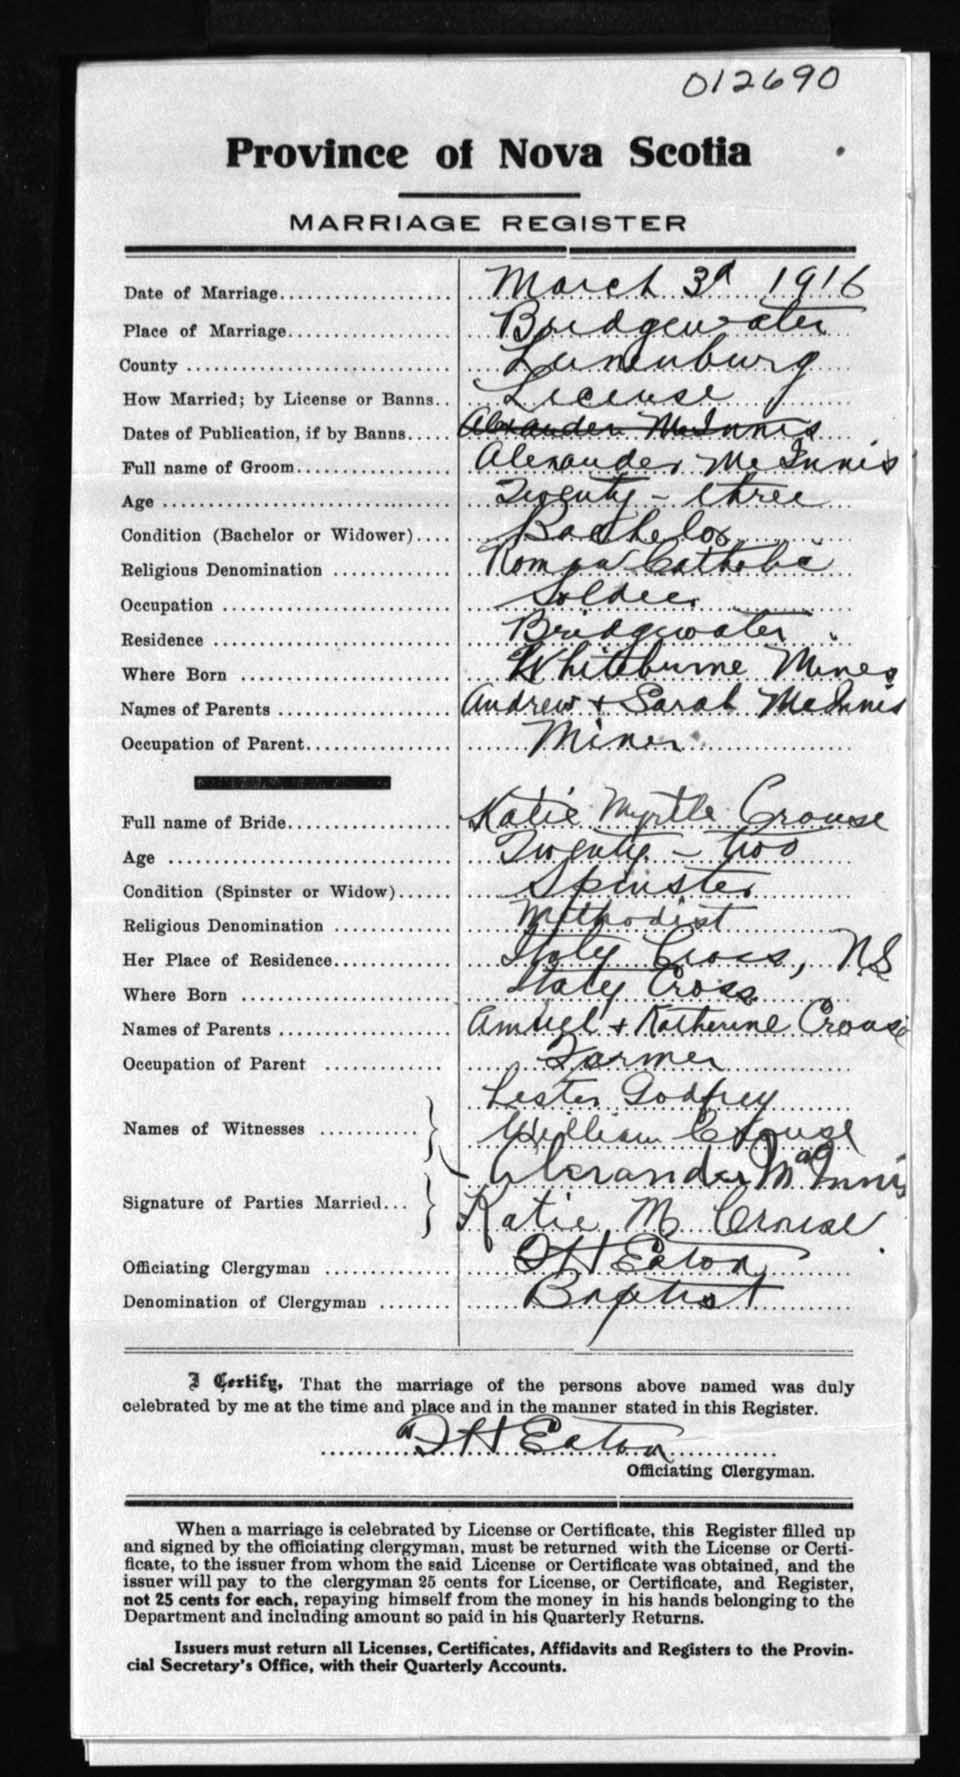 012690
Province of Nova Scotia
MARRIAGE REGISTER
Date of Marriage.................... March 3d 1916
Place of Marriage................... Bridgewater
County .............................. Lunenburg
How Married; by License or Banns.. License
Dates of Publication, if by Banns..... Alexander McInnis
Full name of Groom.................. Alexander McInnis
Age ................................. Twenty - three
Condition (Bachelor or Widower).... Bachelor
Religious Denomination ............. Roman Catholic
Occupation .......................... Soldier
Residence ........................... Bridgewater
Where Born ........................ Whiteburne Mines
Names of Parents .................... Andrew + Sarah McInnis
Occupation of Parent................. Miner
Full name of Bride................... Katie Myrtle Crouse
Age ................................. Twenty - two
Condition (Spinster or Widow)...... Spinster
Religious Denomination ............. Methodist
Her Place of Residence............. Italy Cross, NS
Where Born ........................ Italy Cross
Names of Parents .................... Amuel + Katherine Crouse
Occupation of Parent ............. Farmer
Lester Godfrey
Names of Witnesses ........... William Crouse
Alexander McInnis
Signature of Parties Married... Katie M Crouse
Officiating Clergyman ............... Eaton
Denomination of Clergyman ........ Baptist
I Certify, That the marriage of the persons above named was duly
celebrated by me at the time and place and in the manner stated in this Register.
Eaton
Officiating Clergyman.
When a marriage is celebrated by License or Certificate, this Register filled up
and signed by the officiating clergyman, must be returned with the License or Certi-
ficate, to the issuer from whom the said License or Certificate was obtained, and the
issuer will pay to the clergyman 25 cents for License, or Certificate, and Register,
not 25 cents for each, repaying himself from the money in his hands belonging to the
Department and including amount so paid in his Quarterly Returns.
Issuers must return all Licenses, Certificates, Affidavits and Registers to the Provin-
cial Secretary's Office, with their Quarterly Accounts.